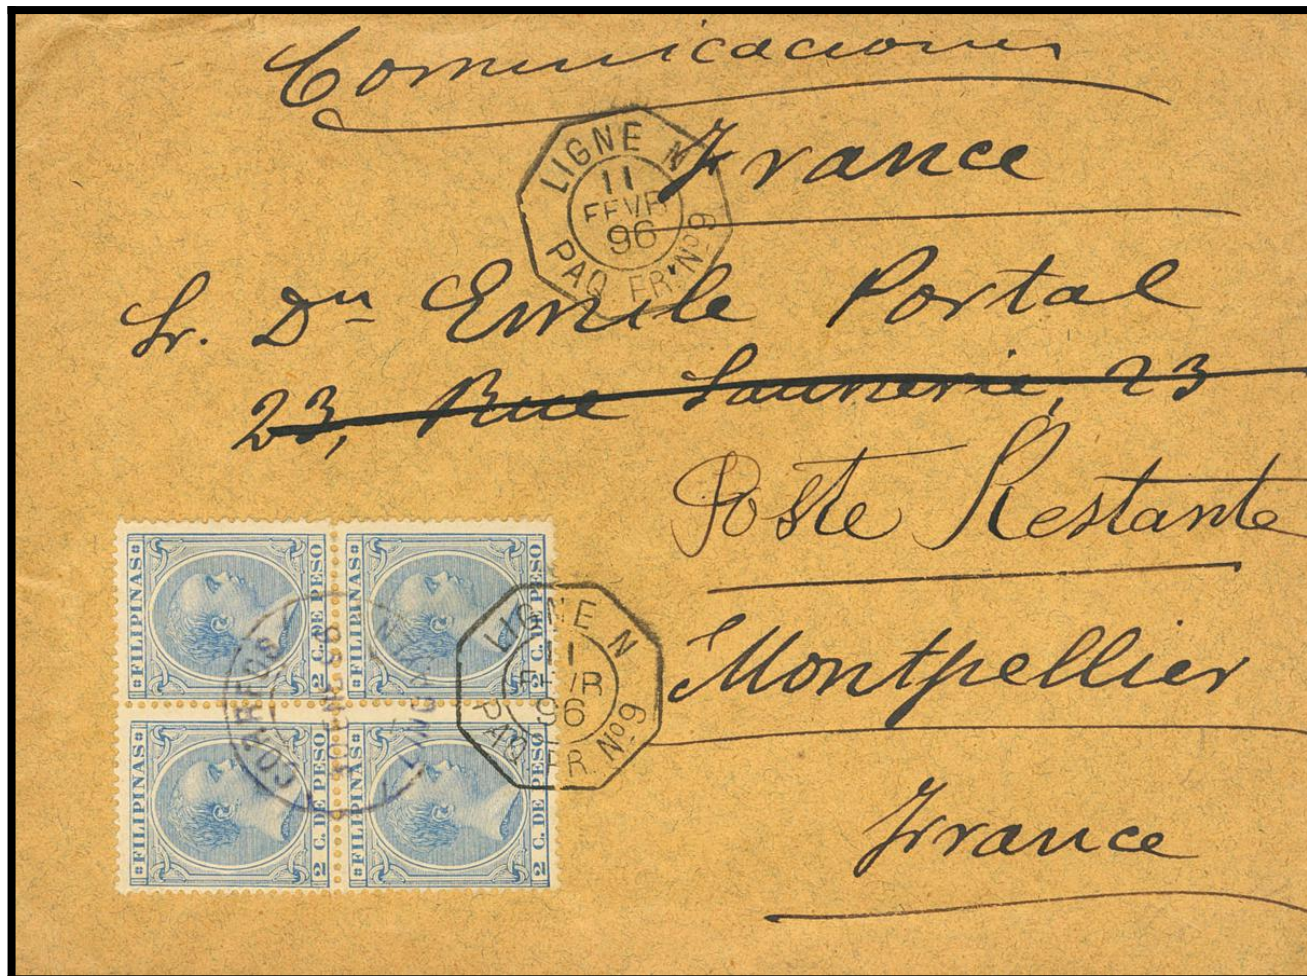 Comunicaciones
France
LIGNE N
11
FEVR
96
PAQ. FR. Nº 9
Sr. Dn Emile Portal
23, Rue Saunerie, 23
Poste Restante
Montpellier
France
FILIPINAS
2 C. DE PESO
FILIPINAS
2 C. DE PESO
FILIPINAS
2 C. DE PESO
FILIPINAS
2 C. DE PESO
CORREOS
LIGNE N
11
FEVR
96
PAQ. FR. Nº 9